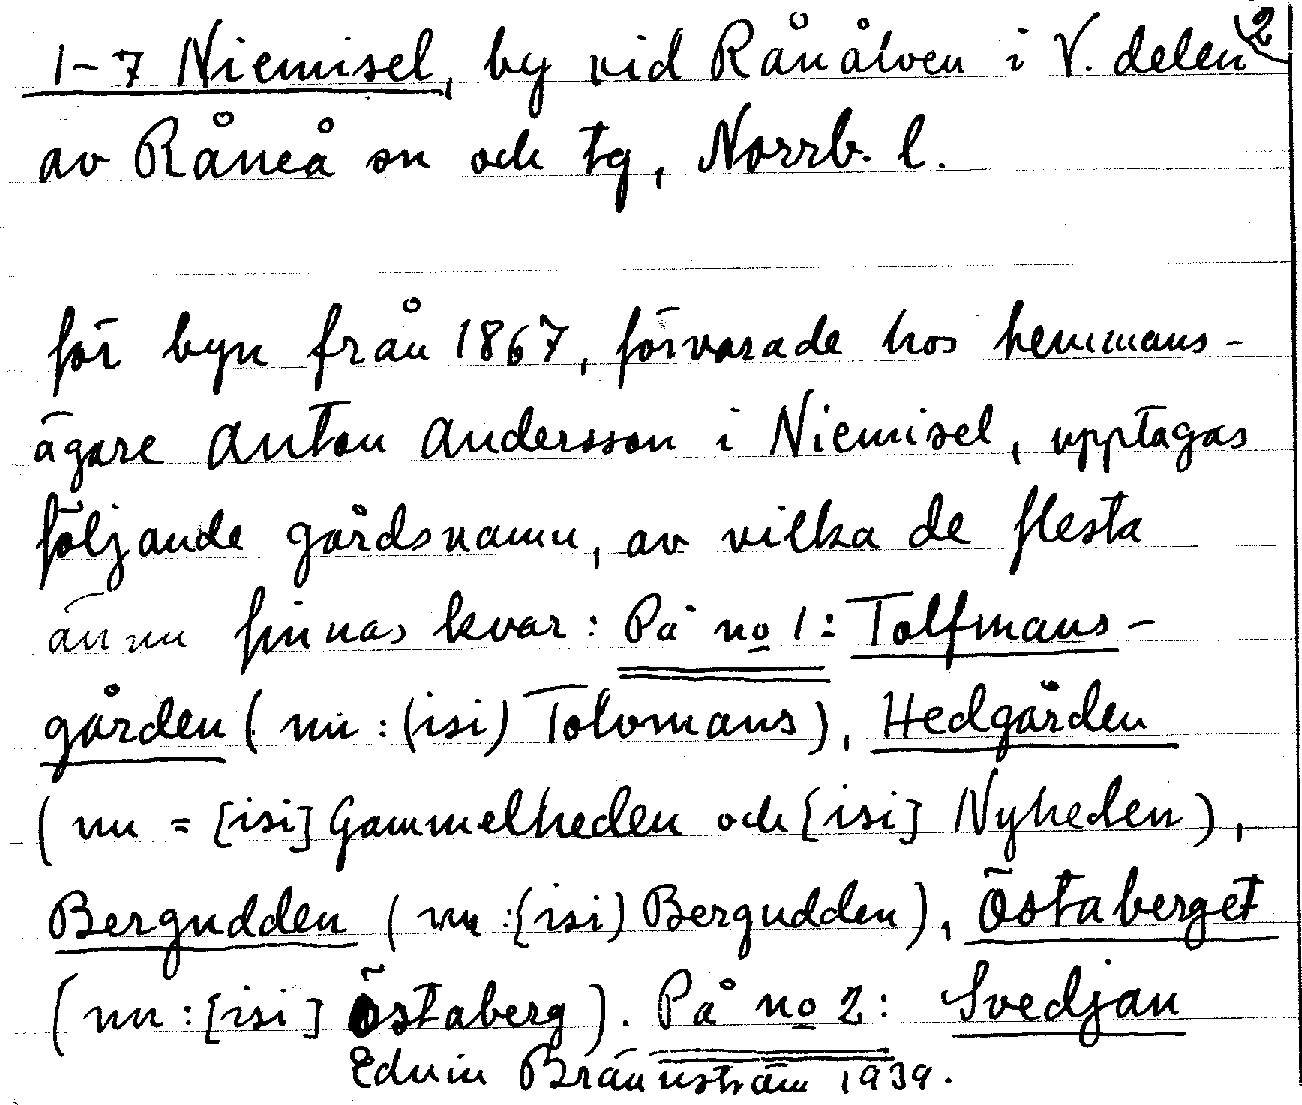 1-7 Niemisel, by vid Rånälven i V. delen 2
av Råneå sn och tg, Norrb. l.
för byn från 1867, förvarade hos hemmans-
ägare Anton Andersson i Niemisel, upptagas
följande gårdsnamn, av vilka de flesta
ännu finnas kvar: På no 1: Tolfmans-
gården (nu: (isi) Tolvmans), Hedgården
(nu = [isi] Gammelheden och [isi] Nyheden),
Bergudden (nu: (isi) Bergudden), Östaberget
(nu: [isi] Östaberg). På no 2: Svedjan
Edvin Brännström 1939.